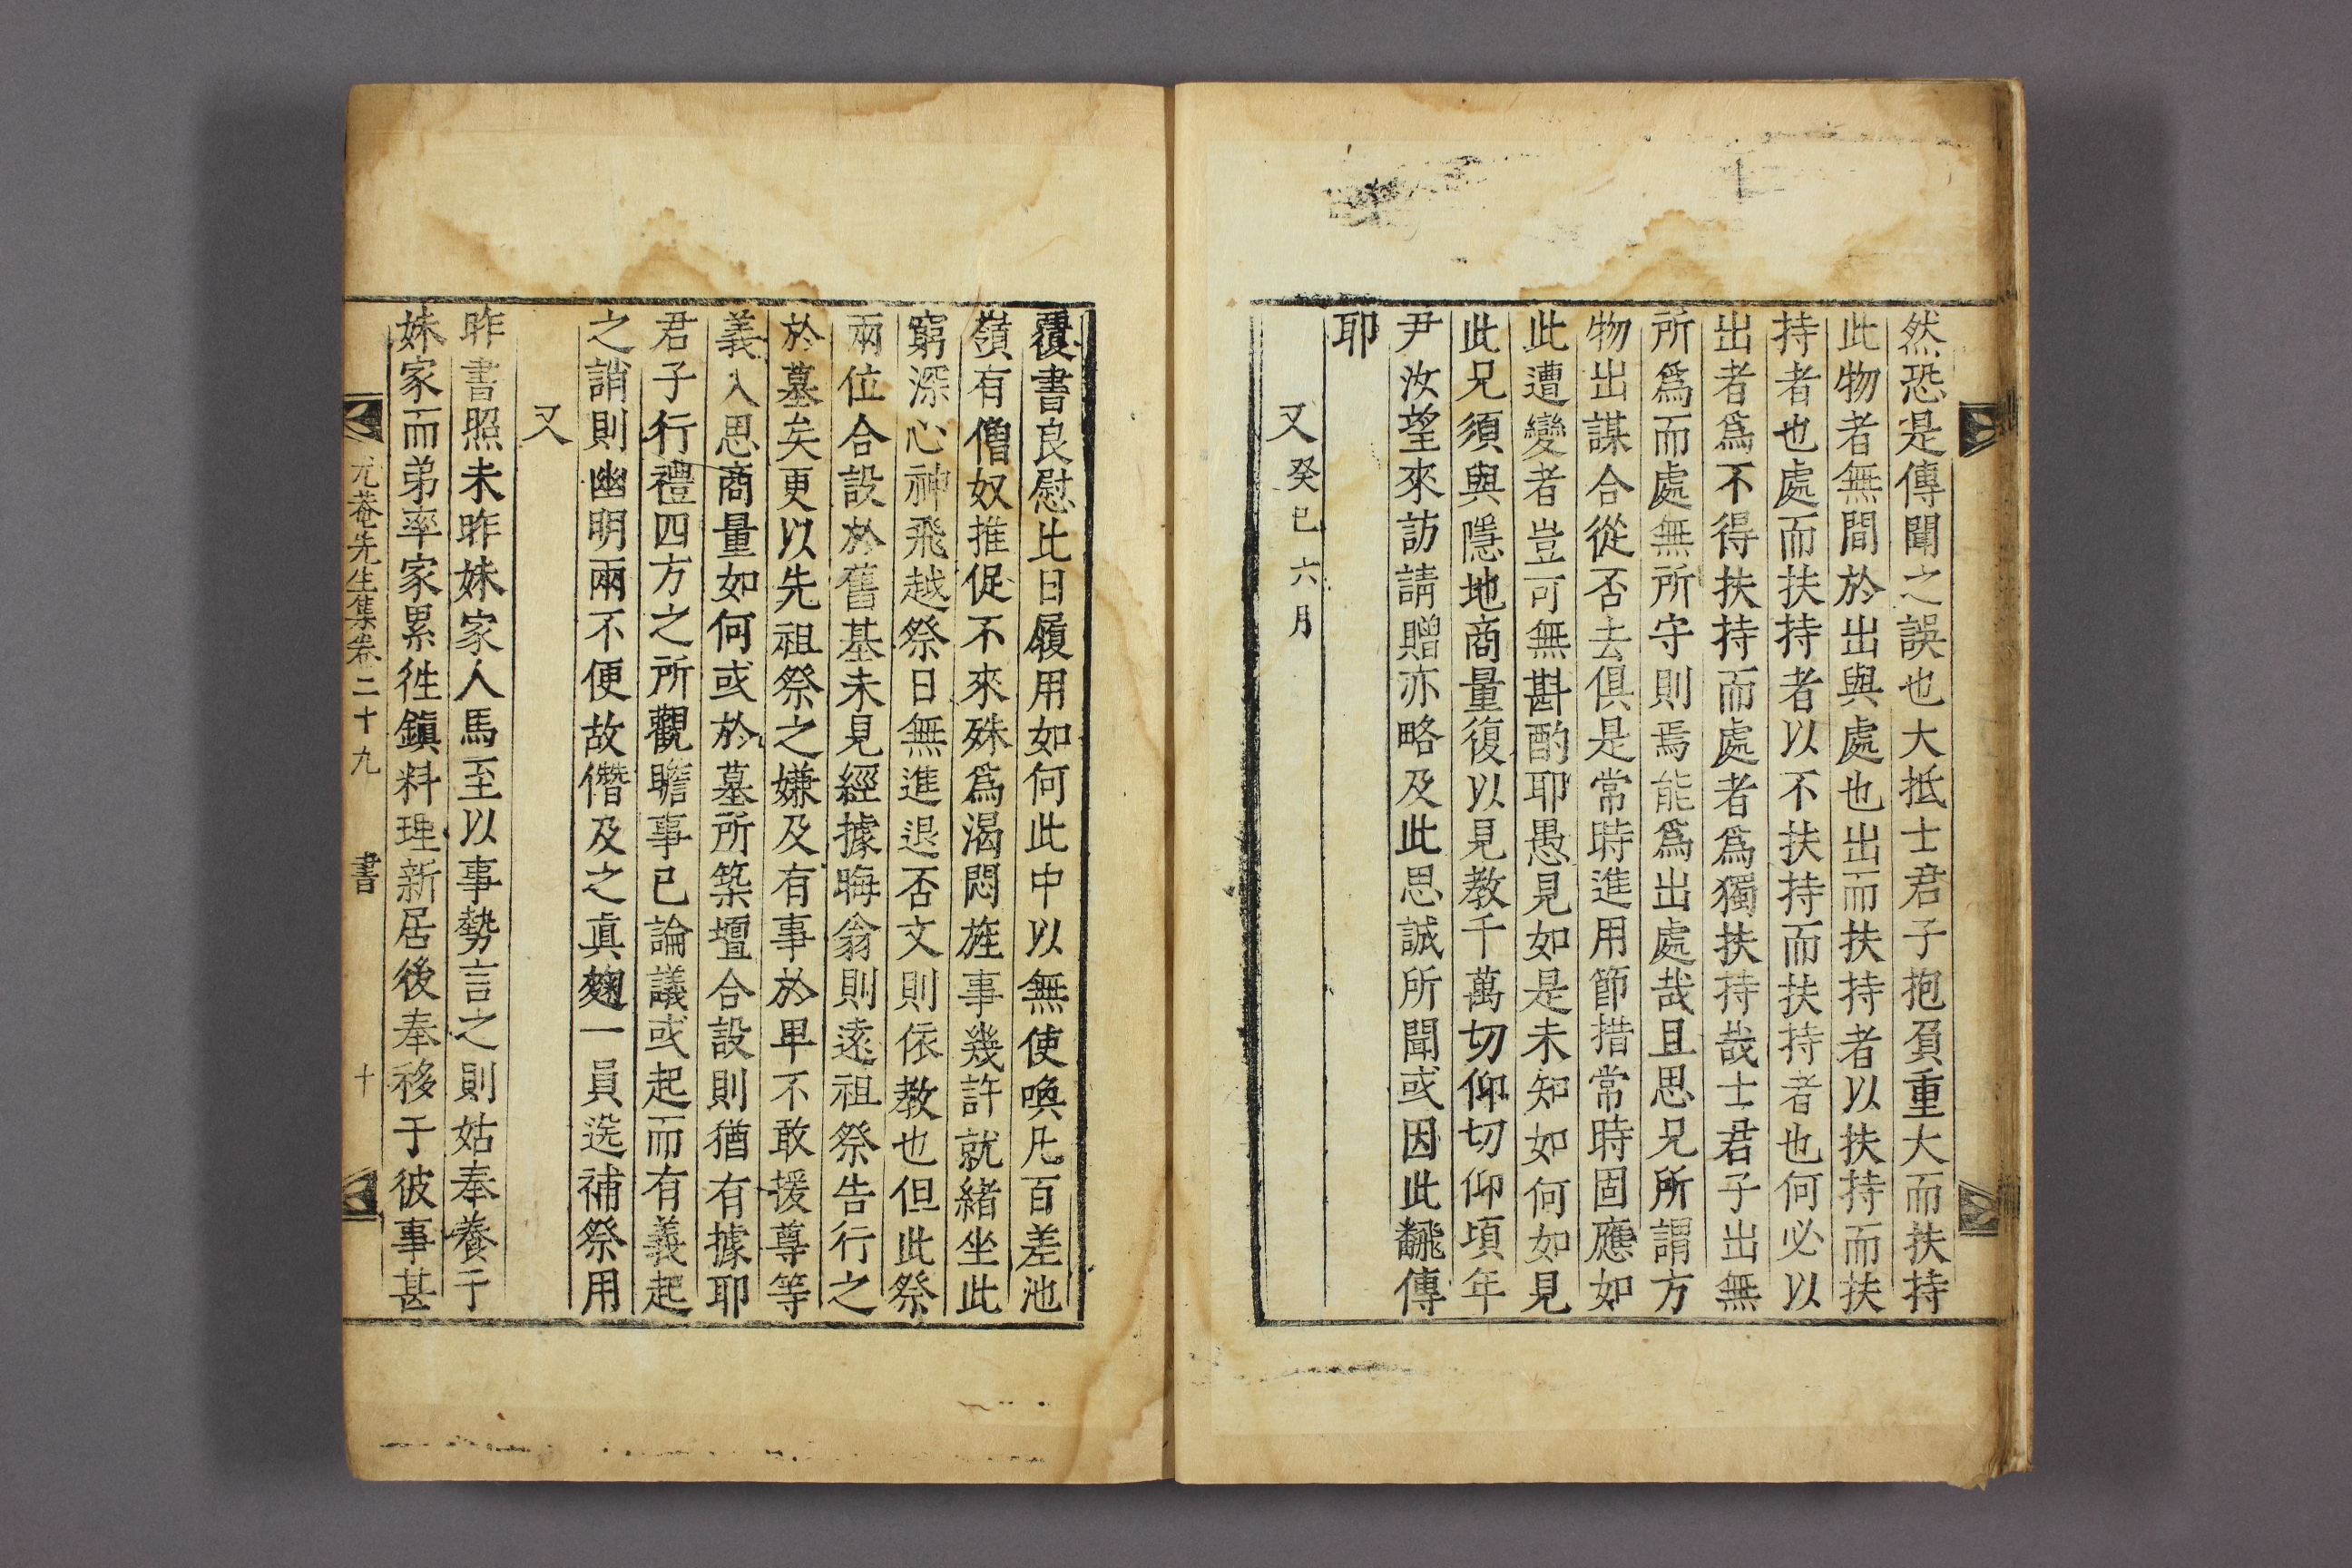 然恐是傳聞之誤也大抵士君子抱負重大而扶持
此物者無間於出與處也出而扶持者以扶持而扶
持者也處而扶持者以不扶持而扶持者也何必以
出者爲不得扶持而處者爲獨扶持哉士君子出無
所爲而處無所守則焉能爲出處哉且思兄所謂方
物出謀合從否去俱是常時進用節措常時固應如
此遭變者豈可無斟酌耶愚見如是未知如何如見
此兄須與隱地商量復以見教千萬切仰切仰頃年
尹汝望來訪請贈亦略及此思誠所聞或因此飜傳
耶
又癸巳六月
覆書良慰比日履用如何此中以無使喚凡百差池
嶺有僧奴推促不來殊爲渴悶旌事幾許就緖坐此
窮深心神飛越祭日無進退否文則依教也但此祭
兩位合設於舊基未見經據晦翁則遠祖祭告行之
於墓矣更以先祖祭之嫌及有事於卑不敢援尊等
義入思商量如何或於墓所築壇合設則猶有據耶
君子行禮四方之所觀瞻事已論議或起而有義起
之誚則幽明兩不便故僭及之眞麴一員送補祭用
又
昨書照未昨妹家人馬至以事勢言之則姑奉養于
妹家而弟率家累徃鎭料理新居後奉移于彼事甚
亢菴先生集卷二十九 書 十